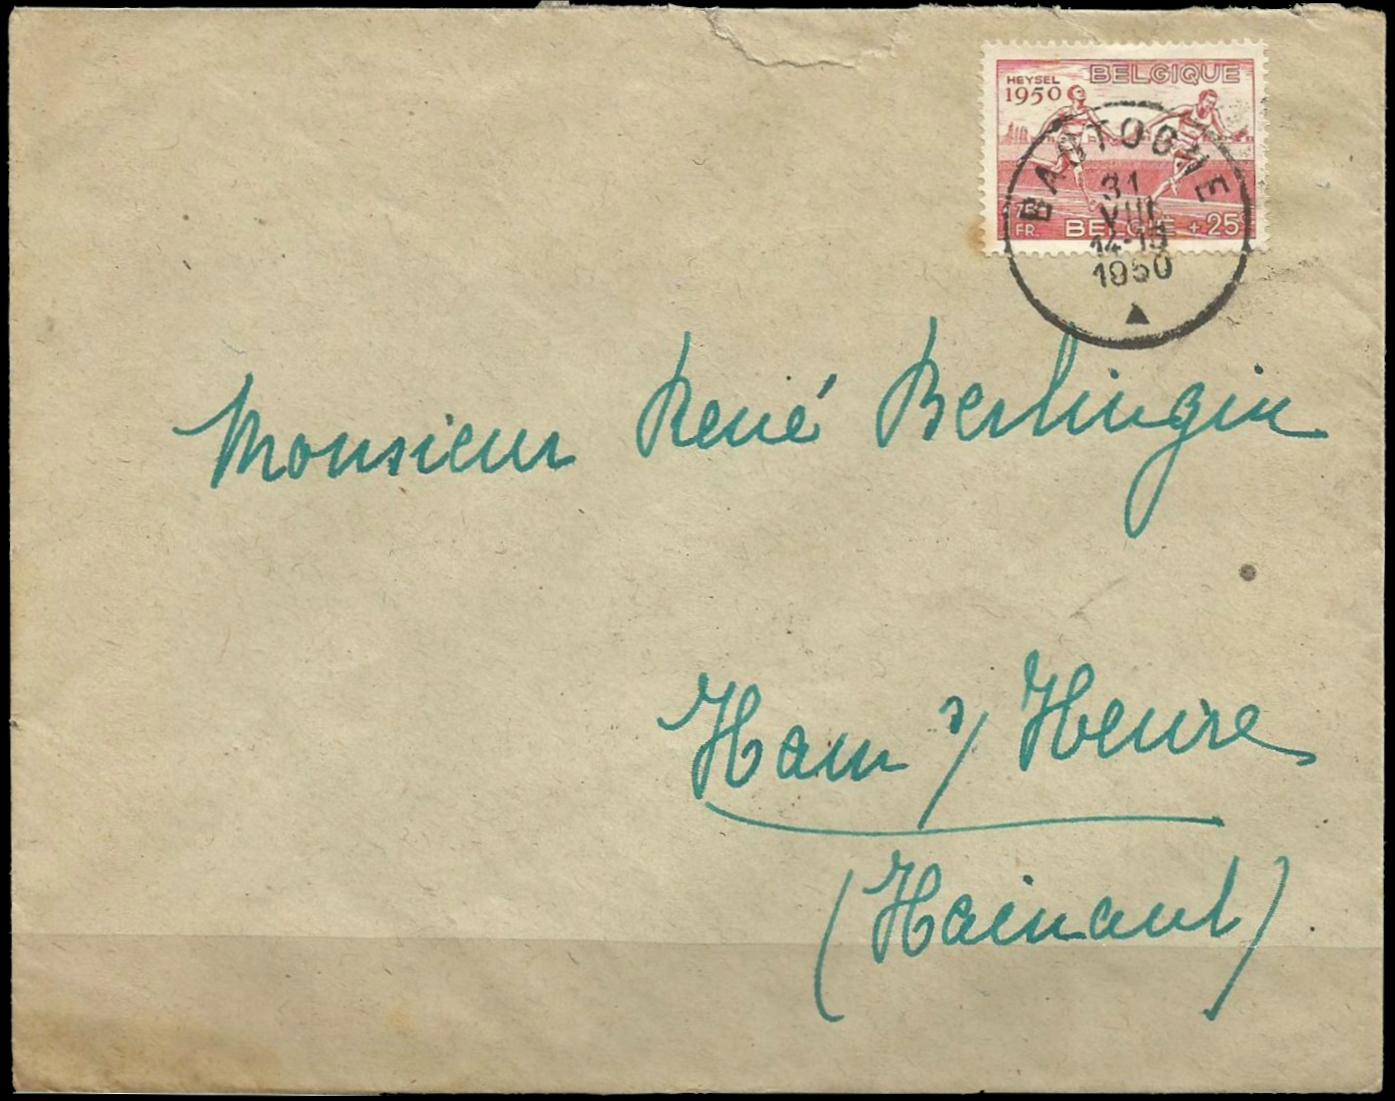 HEYSEL BELGIQUE
1950
BASTOGNE
31
VIII
14-15
1950
FR. BELGIË + 25c
Monsieur René Berlingin
Ham s/ Heure
(Hainaut)